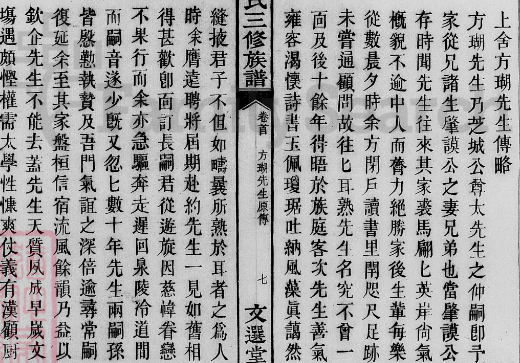 上舍方瑚先生傳略
方瑚先生乃芝城公尊太先生之仲嗣即予
從家兄諸生肇謨公之妻兄弟也當肇謨公
存時聞先生往來其家裘馬翩匕英岸尚氣
概貌不逾中人而膂力絶勝家後生輩每樂
從數晨夕時余方閉戶讀書里閈咫尺足跡
未嘗通顧問故往匕耳熟先生名究不曾
面及後十餘年得晤於族庭客次先生善氣
雍容渴懷詩書玉佩瓊琚吐納風藻眞藹然
氏三修族譜
卷首
方瑚先生原傳
七
文選堂
縫掖君子不但如疇曩所熱於耳者之爲人
時余膺遠聘將屆期赴約先生一見如舊相
得甚歡卽面訂長嗣君從遊旋因慈幃眷戀
不果行而余亦急驅奔走遲回泉陵冷道間
而嗣音遂少旣又忽匕數十年先生兩嗣孫
皆慇懃執贄及吾門氣誼之深倍逾尋常嗣
復延余至其家盤桓信宿流風餘韻乃益以
欽企先生不能去蓋先生天質夙成早歲文
塲遇頗慳權需太學性慷爽仗義有漢顧厨